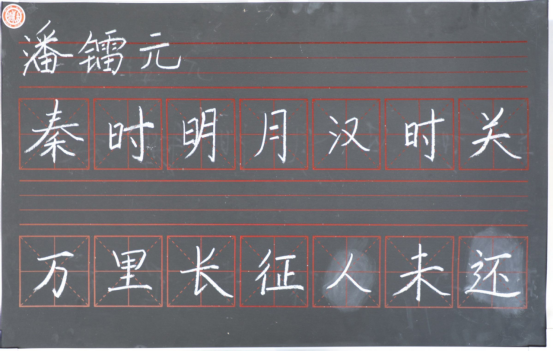 潘镭元
秦时明月汉时关
万里长征人未还